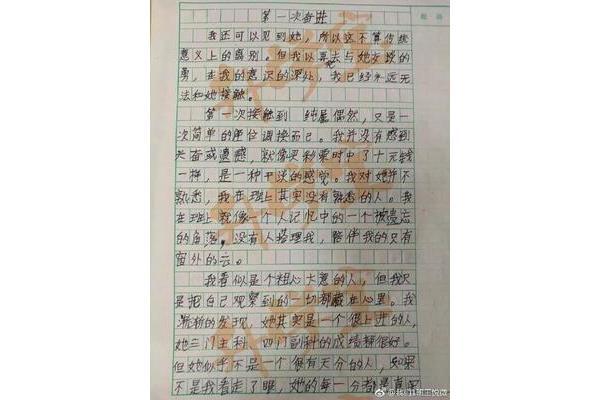 第一次奋进
我还可以见到她，所以这不算传统
意义上的离别。但我以是失去与她交谈的
勇，在我的意识的深处，我已经永远无
法和她接触。
第一次接触到 纯属偶然，又是一
次简单的座位调换而已。我并没有感到
兴奋或遗憾，就像买彩票时中了十元钱
一样，是一种平淡的感觉。我对她并不
熟悉，我在班上其实没有熟悉的人。我
在班上就像一个人记忆中的一个被遗忘
的角落，没有人搭理我，陪伴我的只有
窗外的云。
我看似是个粗心大意的人，但我只
是把自己观察到的一切都藏在心里。我
渐渐的发现，她其实是一个很上进的人，
她三门主科、四门副科的成绩都很好。
但她似乎不是一个很有天分的人，如果
不是我看走了眼，她的每一分都是真
@我们班王悦微